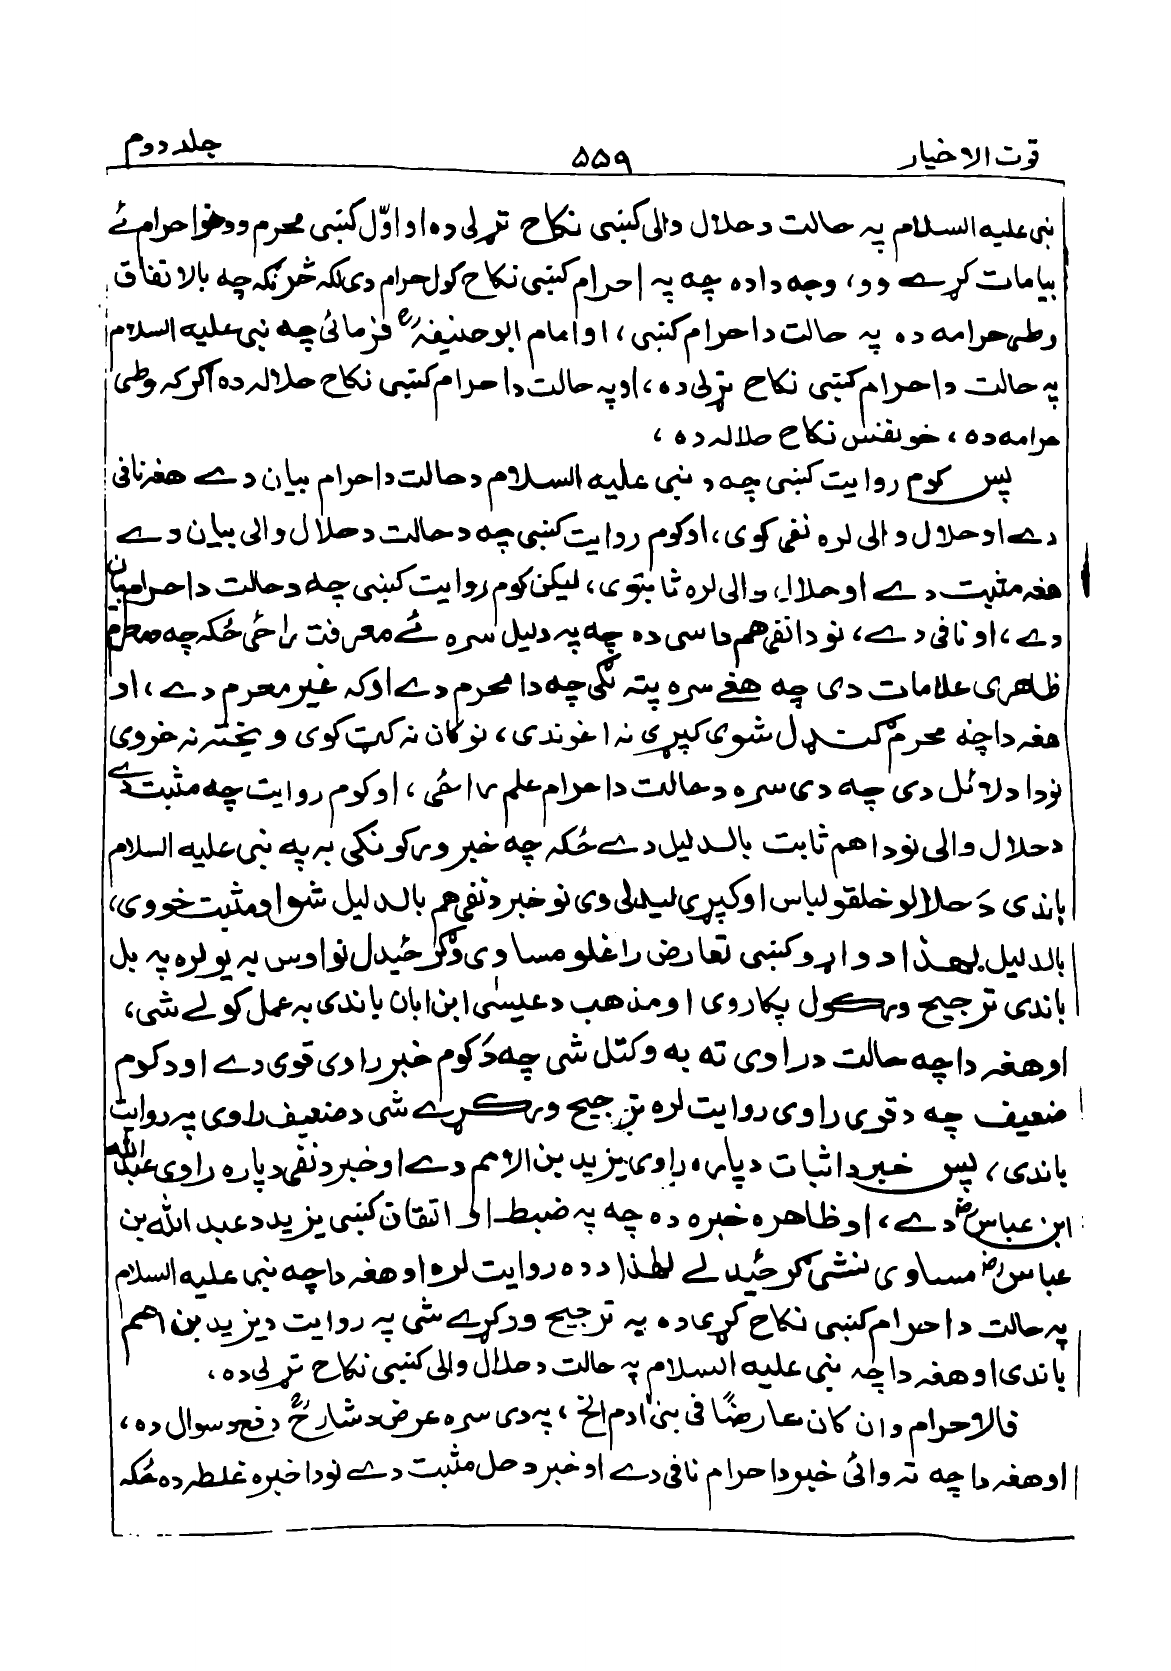 قوت الاخیار ۵۵۹ جلد دوم
نبی علیه السلام په حالت د حلال والی کښی نکاح تړلی ده او اوّل کښی محرم وو دخوا احرام ئے
بیا مات کړے وو، وجه دا ده چه په احرام کښی نکاح کول حرام دی لکه څرنګه چه بالاتفاق
وطی حرامه ده په حالت د احرام کښی، او امام ابو حنیفهؒ فرمائی چه نبی علیه السلام
په حالت د احرام کښی نکاح تړلی ده، او په حالت د احرام کښی نکاح حلاله ده اگر که وطی
حرامه ده، خو نفس نکاح حلاله ده،
پس کوم روایت کښی چه د نبی علیه السلام د حالت د احرام بیان دے هغه نافی
دے او حلال والی لره نفی کوی، او کوم روایت کښی چه د حالت د حلال والی بیان دے
هغه مثبت دے او حلال والی لره ثابتوی، لیکن کوم روایت کښی چه د حالت د احرام بیان
دے، او نافی دے، نو دا نفی هم داسی ده چه په دلیل سره ئے معرفت راځی ځکه چه محرم
ظاهری علامات دی چه هغے سره پته لگی چه دا محرم دے او که غیر محرم دے، او
هغه دا چه محرم گنډل شوی کپړی نه اغوندی، نوکان نه کټ کوی ویخته نه خروی
نو دا دلائل دی چه دی سره د حالت د احرام علم راځی، او کوم روایت چه مثبت دے
د حلال والی نو دا هم ثابت بالدلیل دے ځکه چه خبر ورکونکی به په نبی علیه السلام
باندی دَ حلالو خلقو لباس او کپړی لیدلی وی نو خبر د نفی هم بالدلیل شو او مثبت خو وی،
بالدلیل. لهذا دواړو کښی تعارض راغلو مساوی وګرځیدل نو اوس به یو لره په بل
باندی ترجیح ورکول پکار وی او مذهب د عیسٰی ابن ابان باندی به عمل کولے شی،
او هغه دا چه حالت د راوی ته به وکتل شی چه دَ کوم خبر راوی قوی دے او د کوم
ضعیف چه د قوی راوی روایت لره ترجیح ورکړے شی د ضعیف راوی په روایت
باندی، پس خبر د اثبات دپاره راوی یزید بن الاصم دے او خبر د نفی دپاره راوی عبد الله
ابن عباسؓ دے، او ظاهره خبره ده چه په ضبط او اتقان کښی یزید د عبد الله بن
عباسؓ مساوی نشی گرځیدلے لهٰذا د ده روایت لره او هغه دا چه نبی علیه السلام
په حالت د احرام کښی نکاح کړی ده به ترجیح ورکړے شی په روایت د یزید بن اصم
باندی او هغه دا چه نبی علیه السلام په حالت د حلال والی کښی نکاح تړلی ده،
فالاحرام وان کان عارضًا فی بنی ادم الخ، په دی سره عرض د شارحؒ دفع د سوال ده،
او هغه دا چه ته وائی خبر د احرام نافی دے او خبر د حل مثبت دے نو دا خبره غلطه ده ځکه